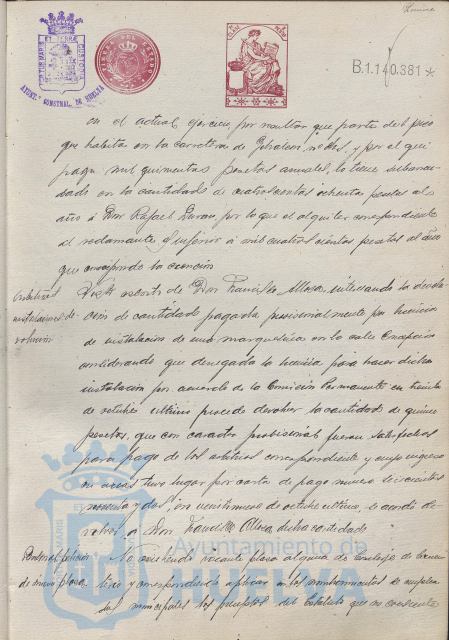 AYUNT.º CONSTNAL. DE HUELVA
TIMBRE DEL ESTADO
B.1.140.381*
en el actual ejercicio, por resultar que parte del piso
que habita en la carretera de Gibraleon, y por el que
paga mil quinientas pesetas anuales, lo tiene subarren-
dado en la cantidad de cuatrocientas ochenta pesetas al
año á Don Rafael Duran, por lo que el alquiler correspondiente
al reclamante es inferior á mil cuatrocientas pesetas al año
que corresponde la exención
Arbitrios
instalaciones de-
volución
Visto escrito de Don Francisco Mora, interesando la devolu-
cion de cantidad pagada provisionalmente por licencia
de instalación de una marquesina en la calle Concepcion
considerando que denegada la licencia para hacer dicha
instalación por acuerdo de la Comisión Permanente en treinta
de octubre ultimo procede devolver la cantidad de quince
pesetas, que con caracter provisional fueron satisfechas
para pago de los arbitrios correspondiente y cuyo ingreso
en arcas tuvo lugar por carta de pago numero seiscientos
noventa y dos, en veintinueve de octubre ultimo, se acordó de-
volver á Don Francisco Mora dicha cantidad
Personal
de nueva plaza
No existiendo vacante plaza alguna de
y correspondiendo aplicar en los nombramientos de emplea-
dos municipales los preceptos del Estatuto que no consiente
Ayuntamiento de
HUELVA